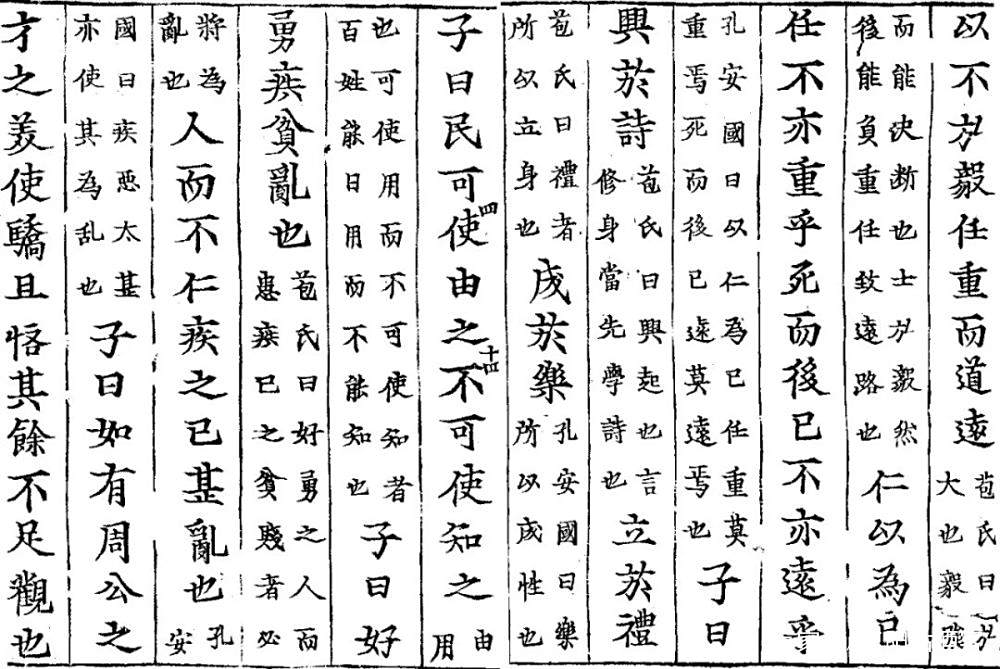 以不弘毅任重而道遠苞氏曰弘大也毅
而能決断也士弘毅然後能負重任致遠路也仁以為己
任不亦重乎死而後已不亦遠乎
孔安國曰以仁為己任重莫重焉死而後已遠莫遠焉也子曰
興於詩苞氏曰興起也言修身當先學詩也立於禮
苞氏曰禮者所以立身也成於樂孔安國曰樂所以成性也
子曰民可使四由之十四不可使知之由用
也可使用而不可使知者百姓能日用而不能知也子曰好
勇疾貧亂也苞氏曰好勇之人而患疾已之貧賤者必
將為亂也人而不仁疾之已甚亂也孔安
國曰疾悪太甚亦使其為乱也子曰如有周公之
才之美使驕且悋其餘不足觀也